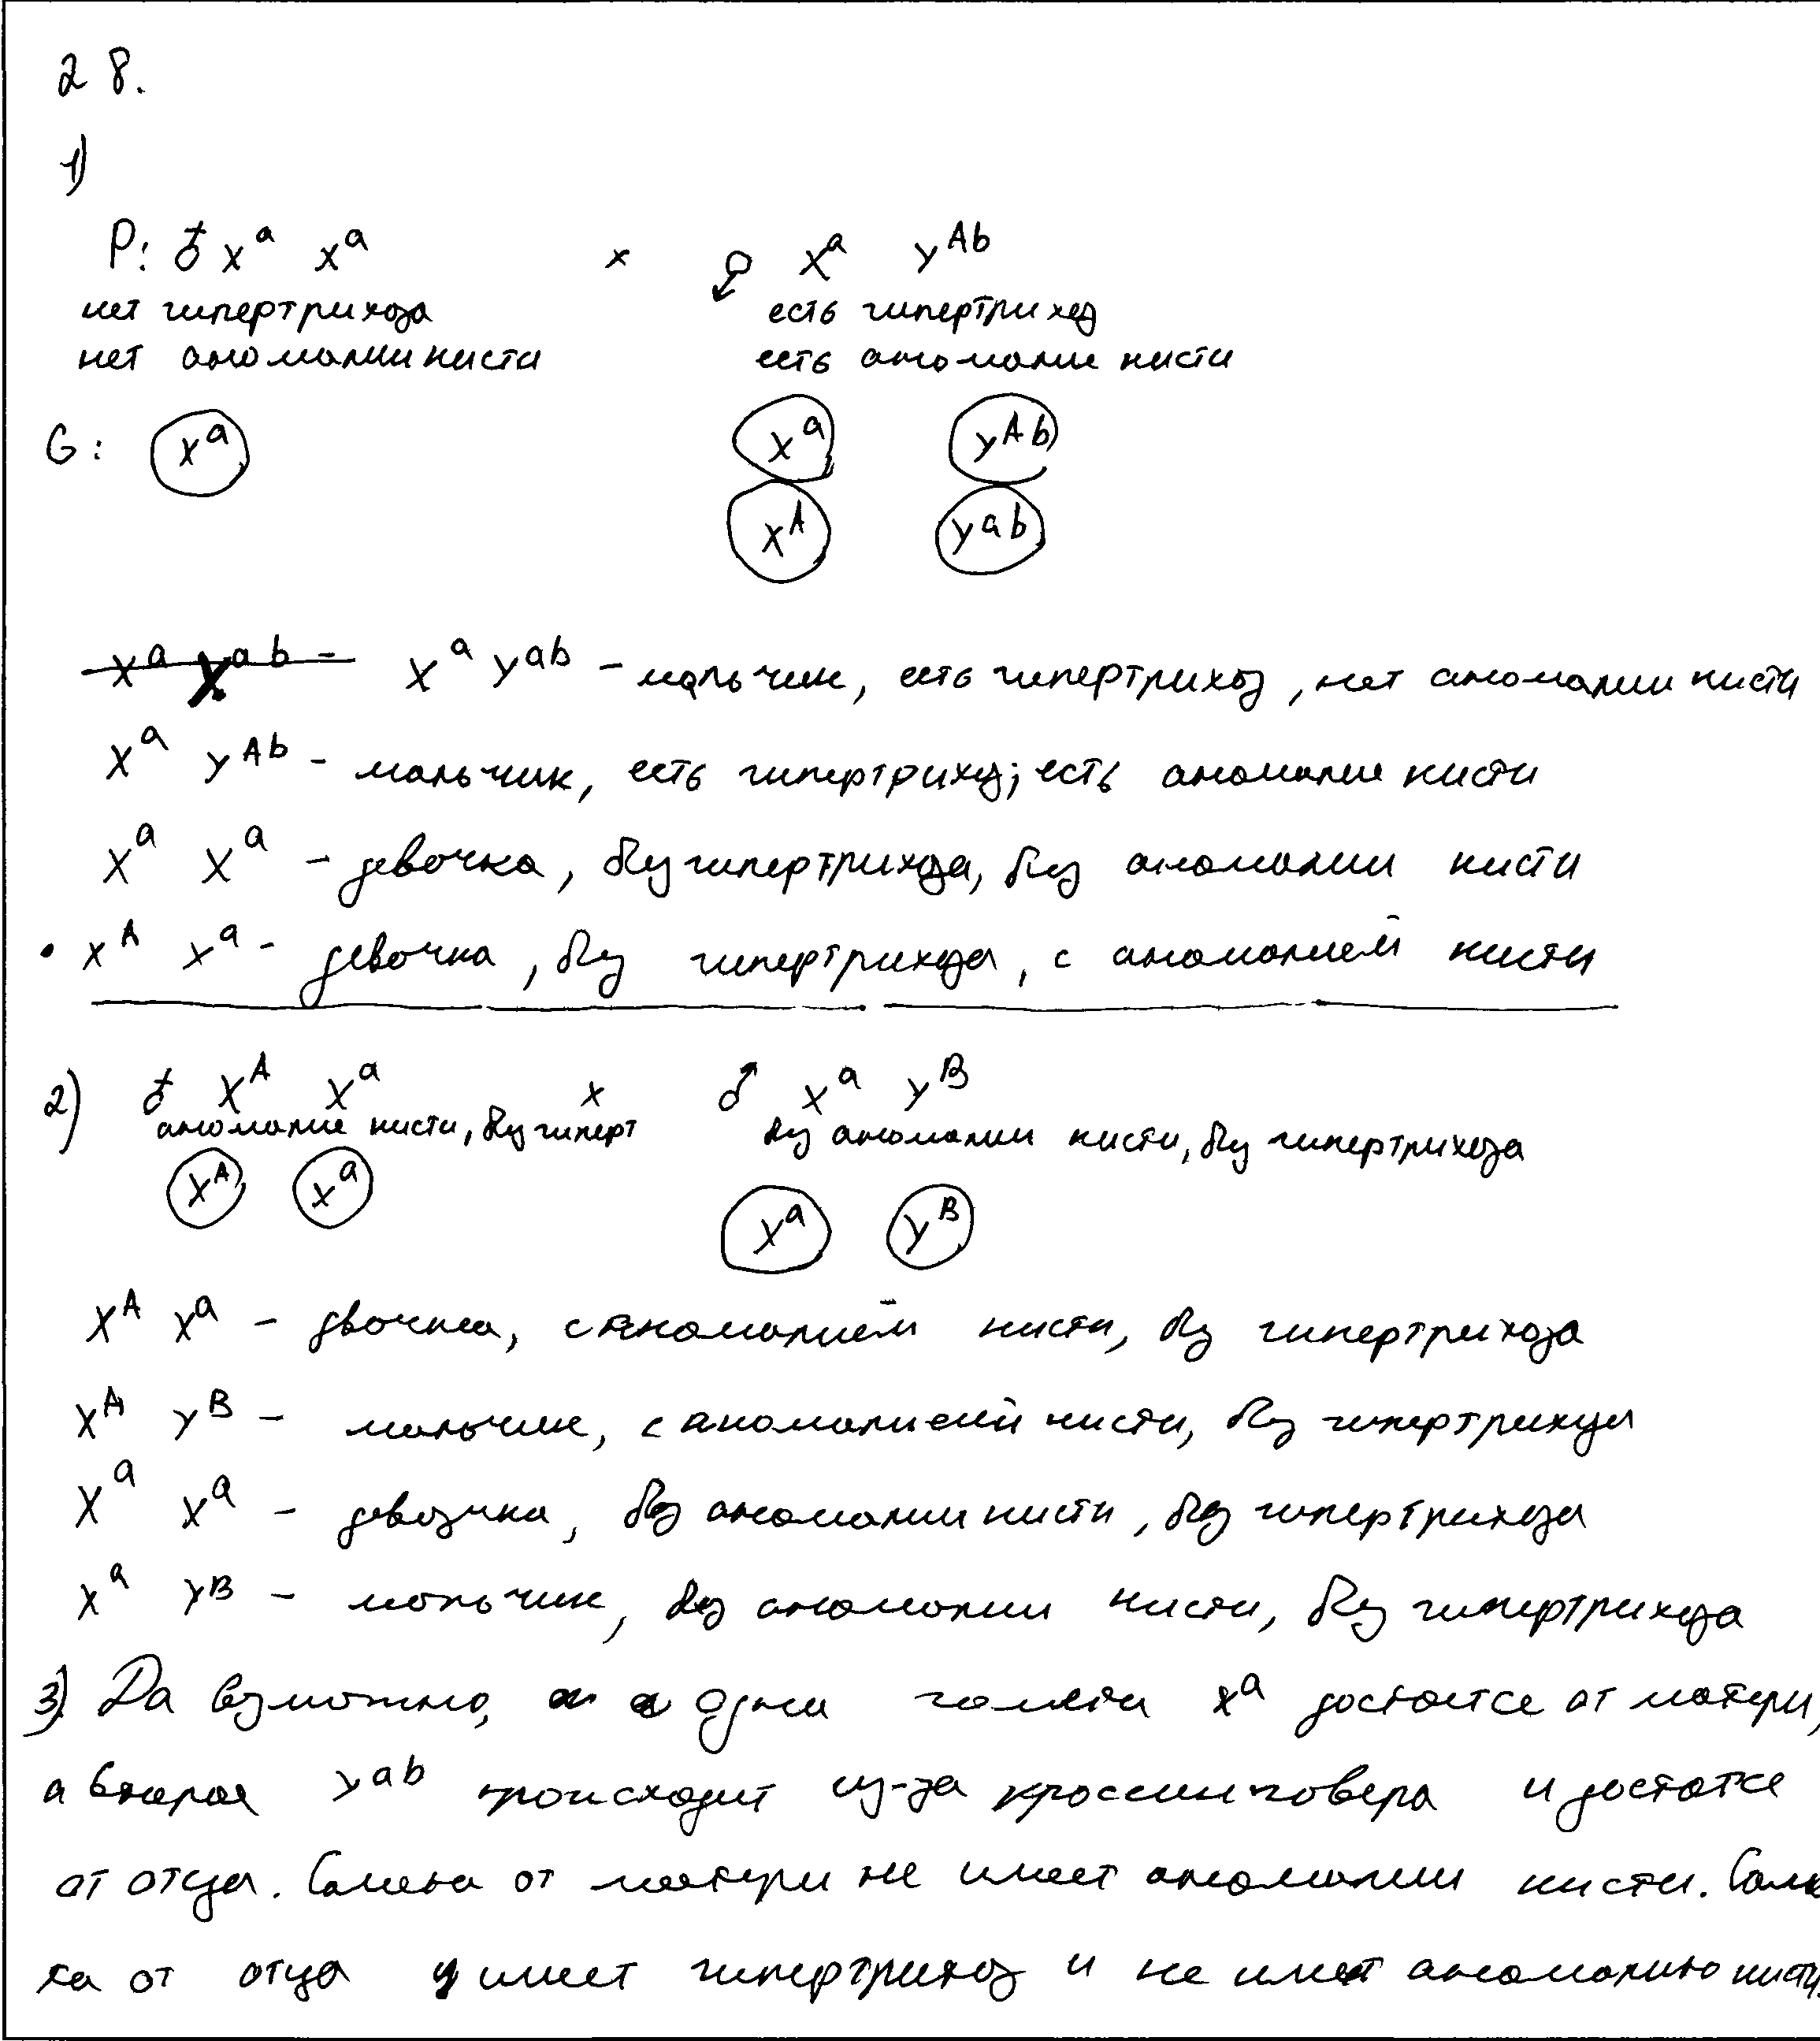 28.
1)
P: ♀ xᵃ xᵃ × ♂ xᵃ yᴬᵇ
нет гипертрихоза есть гипертрихоз
нет аномалии кисти есть аномалие кисти
G: xᵃ xᵃ yᴬᵇ
xᴬ yᵃᵇ
xᵃ yᵃᵇ – мальчик, есть гипертрихоз, нет аномалии кисти
xᵃ yᴬᵇ – мальчик, есть гипертрихоз; есть аномалие кисти
xᵃ xᵃ – девочка, без гипертрихоза, без аномалии кисти
• xᴬ xᵃ – девочка, без гипертрихоза, с аномалией кисти
2) ♀ xᴬ xᵃ × ♂ xᵃ yᴮ
аномалие кисти, без гиперт без аномалии кисти, без гипертрихоза
xᴬ xᵃ xᵃ yᴮ
xᴬ xᵃ – двочка, с аномалией кисти, без гипертрихоза
xᴬ yᴮ – мальчик, с аномалиеий кисти, без гипертрихоза
xᵃ xᵃ – девочка, без аномалии кисти, без гипертрихоза
xᵃ yᴮ – мальчик, без аномалии кисти, без гипертрихоза
3) Да возможно, одна гамета xᵃ достаётся от матери,
а вторая yᵃᵇ происходит из-за кроссинговера и достаётся
от отца. Гамета от матери не имеет аномалии кисти. Гаме
та от отца имеет гипертрихоз и не имеет аномалию кисти.